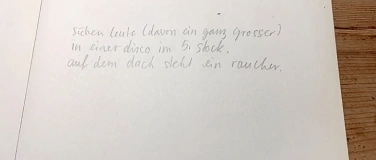 sieben leute (davon ein ganz grosser)
in einer disco im 5. stock.
auf dem dach steht ein raucher.